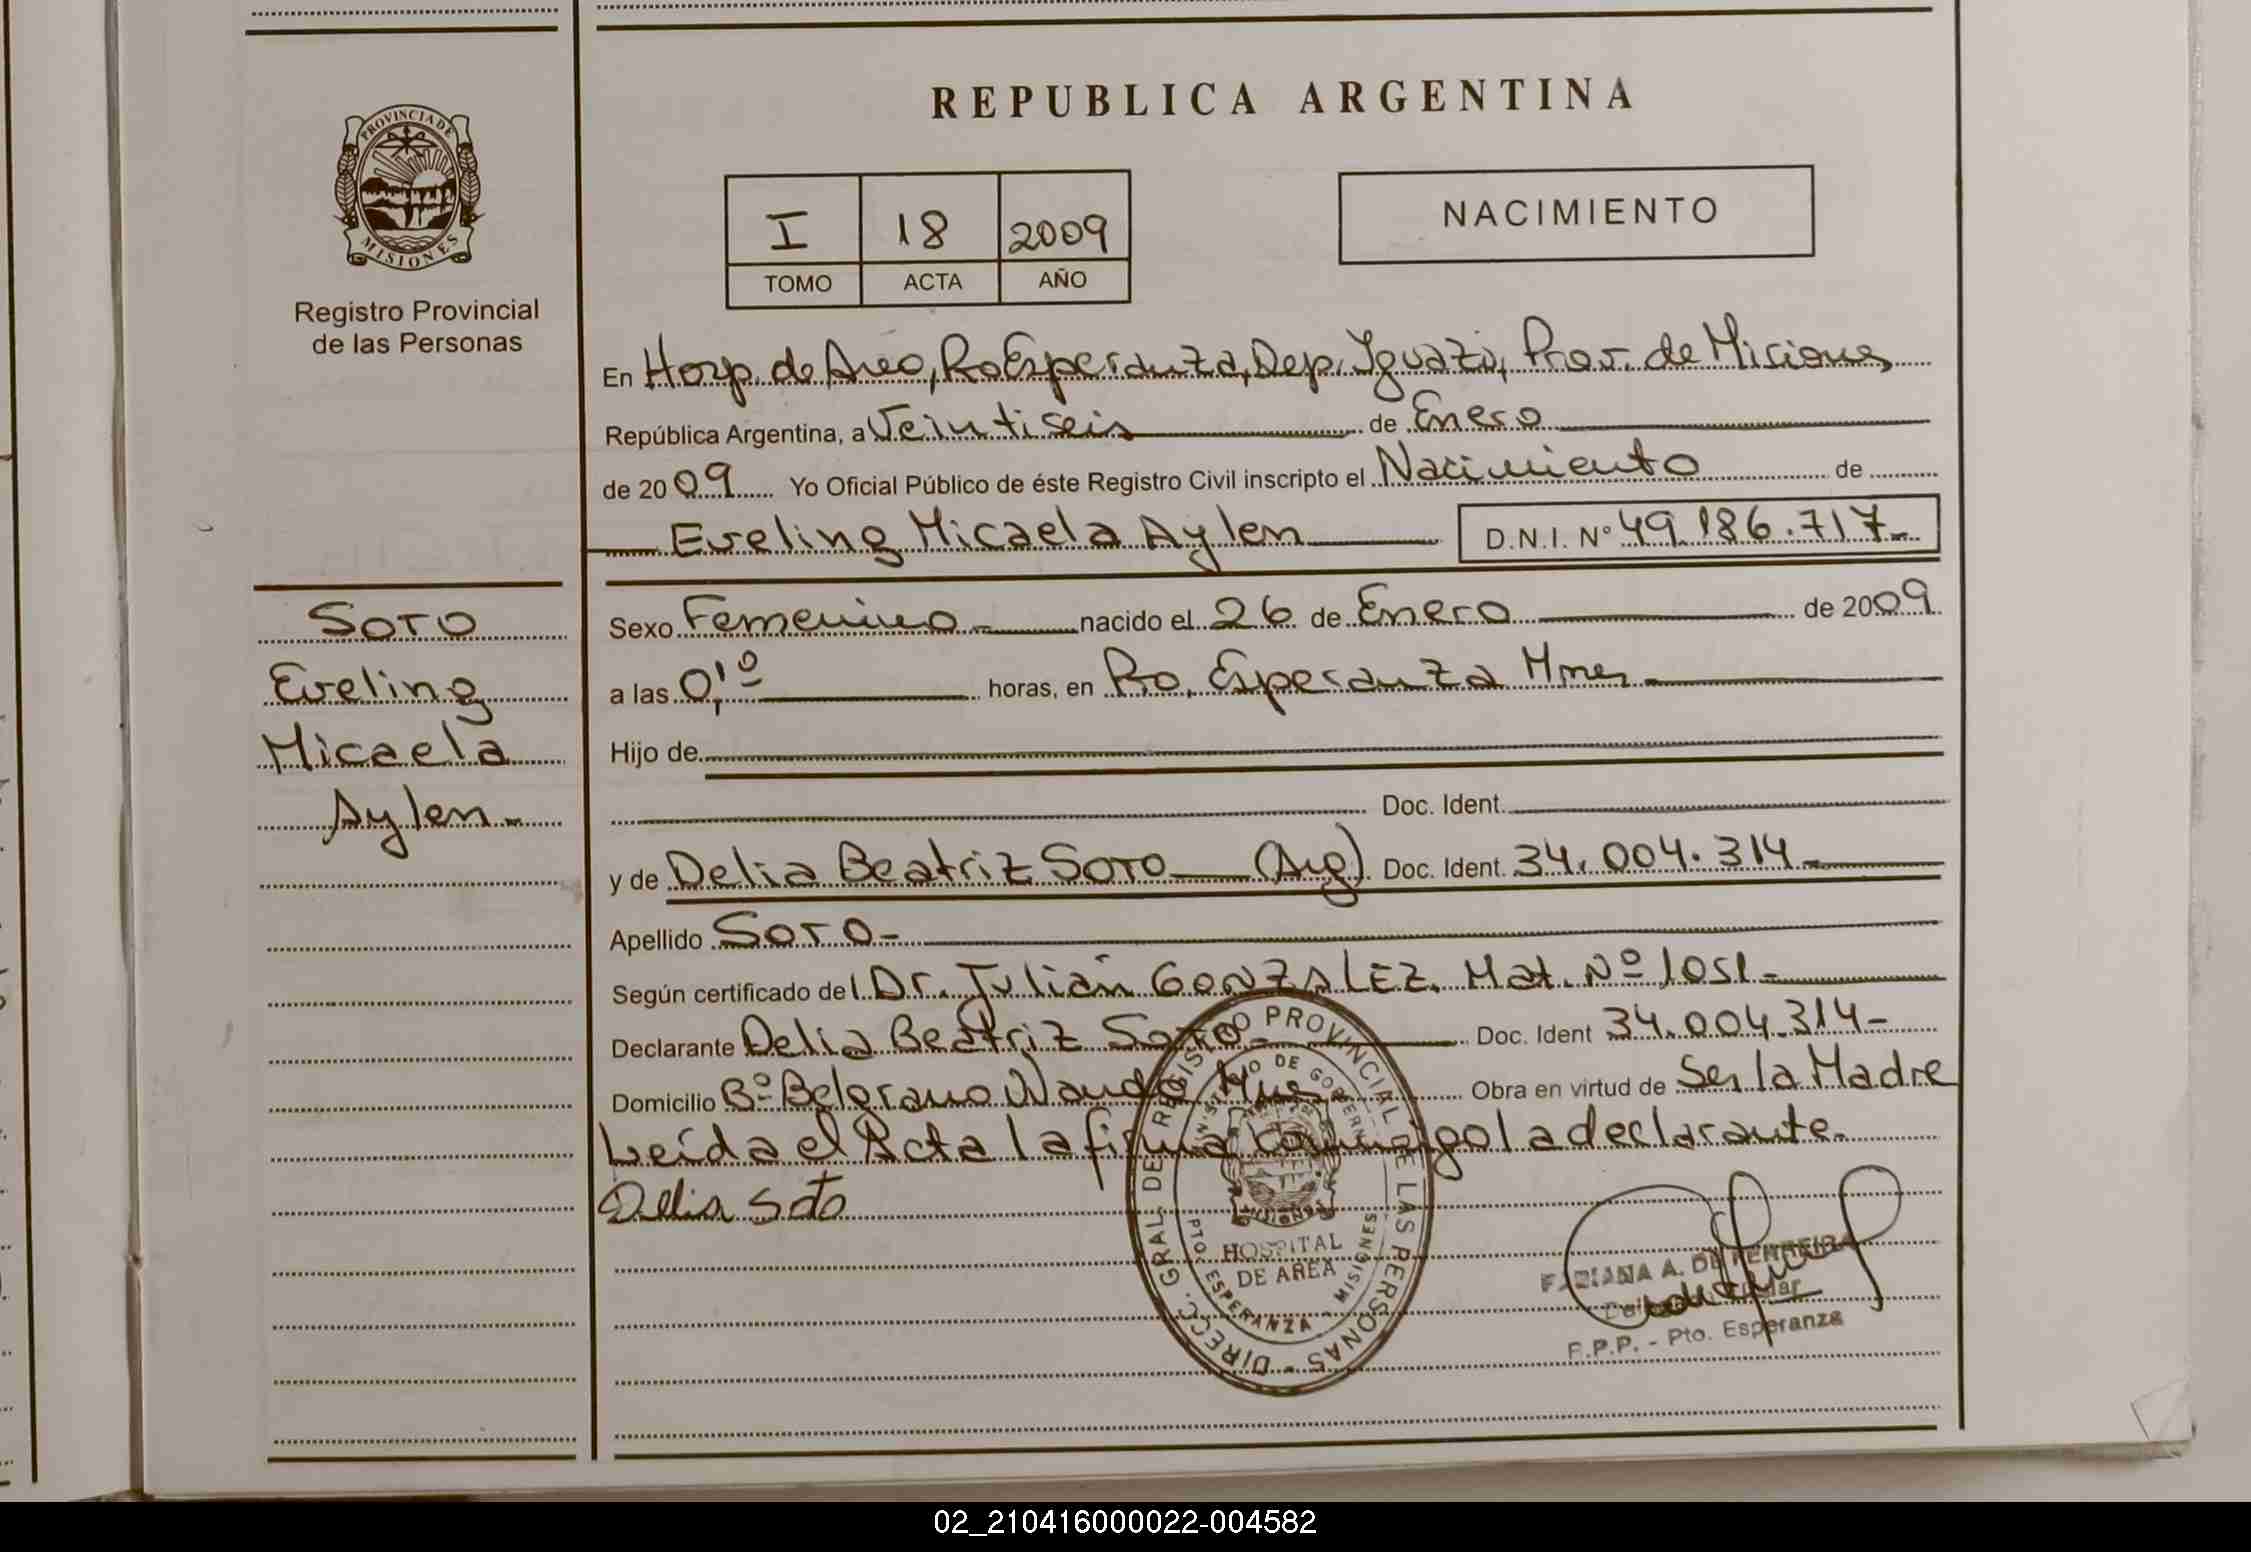 REPUBLICA ARGENTINA
PROVINCIA DE
MISIONES
Registro Provincial
de las Personas
I 18 2009
TOMO ACTA AÑO
NACIMIENTO
En Hosp. de Area, Pto Esperanza, Dep. Iguazú, Prov. de Misiones
República Argentina, a Veintiseis de Enero
de 2009 Yo Oficial Público de éste Registro Civil inscripto el Nacimiento de
Eveling Micaela Aylen D.N.I. Nº 49.186.717-
SOTO
Eveling
Micaela
Aylen-
Sexo Femenino- nacido el 26 de Enero de 2009
a las 0,10 horas, en Pto. Esperanza Mnes-
Hijo de
Doc. Ident.
y de Delia Beatriz SOTO (Arg) Doc. Ident. 34.004.314-
Apellido SOTO-
Según certificado del Dr. Julián GONZALEZ. Mat. Nº 1051-
Declarante Delia Beatriz Soto- Doc. Ident 34.004.314-
Domicilio Bº Belgrano Wanda Mnes Obra en virtud de Ser la Madre
Leída el Acta la firma conmigo la declarante.
Delia Soto
DIRECC. GRAL. DE REGISTRO PROVINCIAL DE LAS PERSONAS -
MINISTERIO DE GOBIERNO
HOSPITAL
DE AREA
PTO. ESPERANZA - MISIONES
FABIANA A. DE FERREIRA
R.P.P. - Pto. Esperanza
02_210416000022-004582